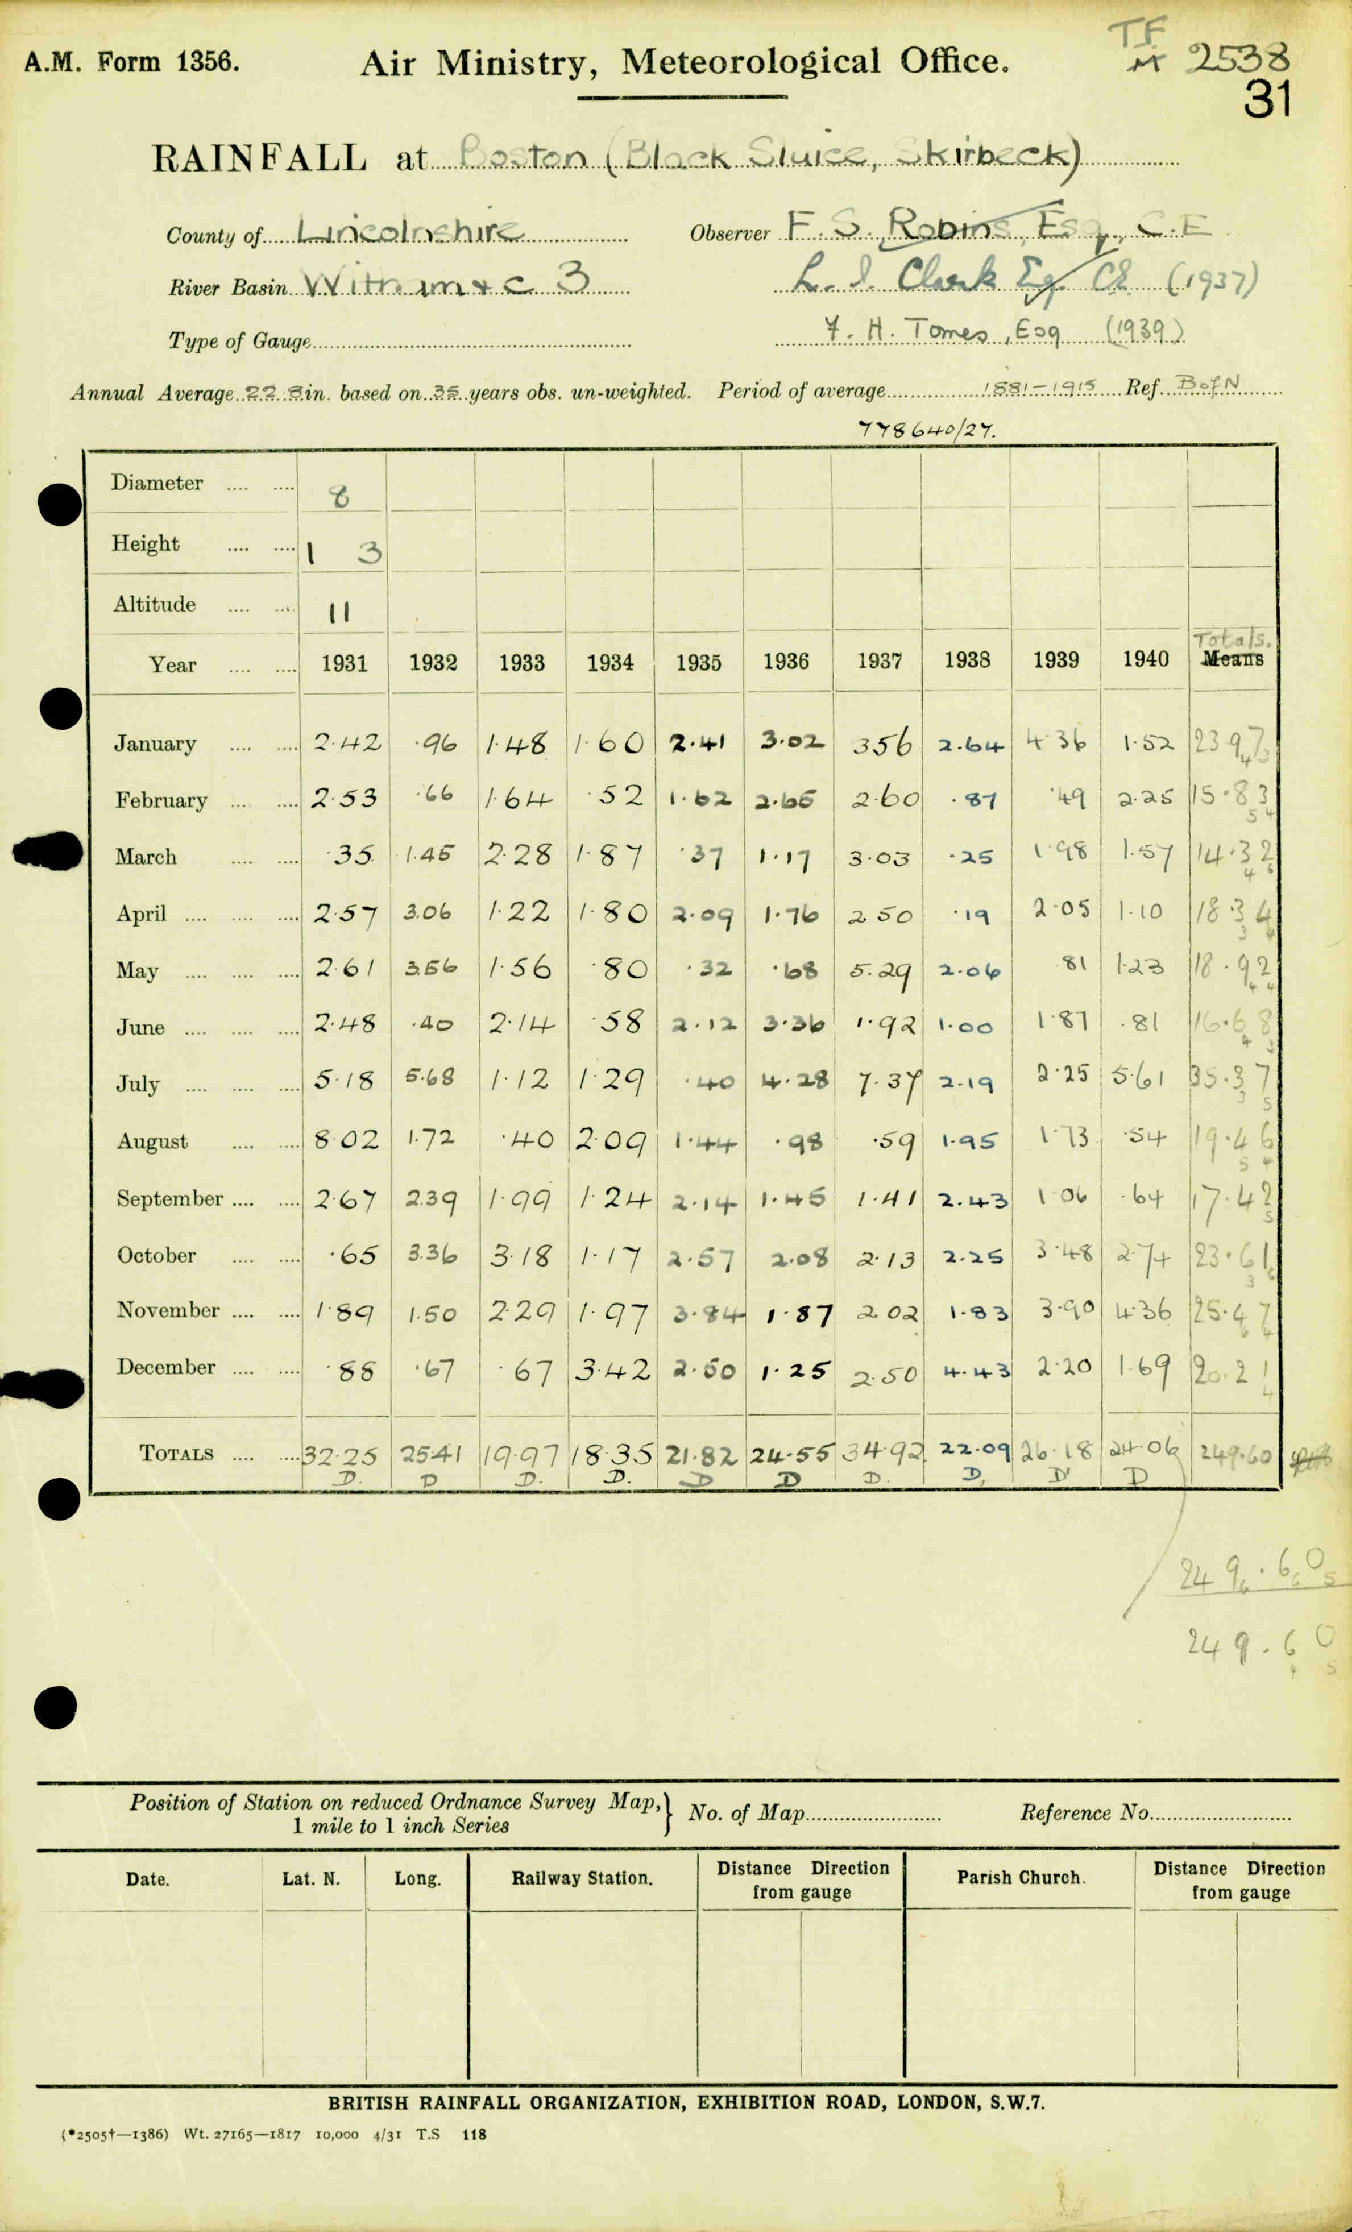 A.M. Form 1356.
Air Ministry, Meteorological Office.
TF 2538
31
RAINFALL at Boston (Black Sluice, Skirbeck)
County of Lincolnshire Observer F. S. Robins, Esq., C.E
River Basin Witham & c 3 L. I. Clark Esq. CE (1937)
Type of Gauge F. H. Tomes, Esq (1939)
Annual Average 22.8 in. based on 35 years obs. un-weighted. Period of average 1881-1915 Ref. B of N
778640/27.
Diameter 8
Height 1 3
Altitude 11
Totals.
Year 1931 1932 1933 1934 1935 1936 1937 1938 1939 1940 Means
January 2.42 .96 1.48 1.60 2.41 3.02 3.56 2.64 4.36 1.52 23.97
February 2.53 .66 1.64 .52 1.62 2.65 2.60 .87 .49 2.25 15.83
March .35 1.45 2.28 1.87 .37 1.17 3.03 .25 1.98 1.57 14.32
April 2.57 3.06 1.22 1.80 2.09 1.76 2.50 .19 2.05 1.10 18.34
May 2.61 3.56 1.56 .80 .32 .68 5.29 2.06 .81 1.23 18.92
June 2.48 .40 2.14 .58 2.12 3.36 1.92 1.00 1.87 .81 16.68
July 5.18 5.68 1.12 1.29 .40 4.28 7.37 2.19 2.25 5.61 35.37
August 8.02 1.72 .40 2.09 1.44 .98 .59 1.95 1.73 .54 19.46
September 2.67 2.39 1.99 1.24 2.14 1.45 1.41 2.43 1.06 .64 17.42
October .65 3.36 3.18 1.17 2.57 2.08 2.13 2.25 3.48 2.74 23.61
November 1.89 1.50 2.29 1.97 3.84 1.87 2.02 1.83 3.90 4.36 25.47
December .88 .67 .67 3.42 2.50 1.25 2.50 4.43 2.20 1.69 20.21
TOTALS 32.25 25.41 19.97 18.35 21.82 24.55 34.92 22.09 26.18 24.06 249.60
D. D D. D. D D D. D. D D
249.60
249.60
Position of Station on reduced Ordnance Survey Map, } No. of Map Reference No.
1 mile to 1 inch Series
Date. Lat. N. Long. Railway Station. Distance Direction from gauge Parish Church. Distance Direction from gauge
BRITISH RAINFALL ORGANIZATION, EXHIBITION ROAD, LONDON, S.W.7.
(*2505†—1386) Wt. 27165—1817 10,000 4/31 T.S 118